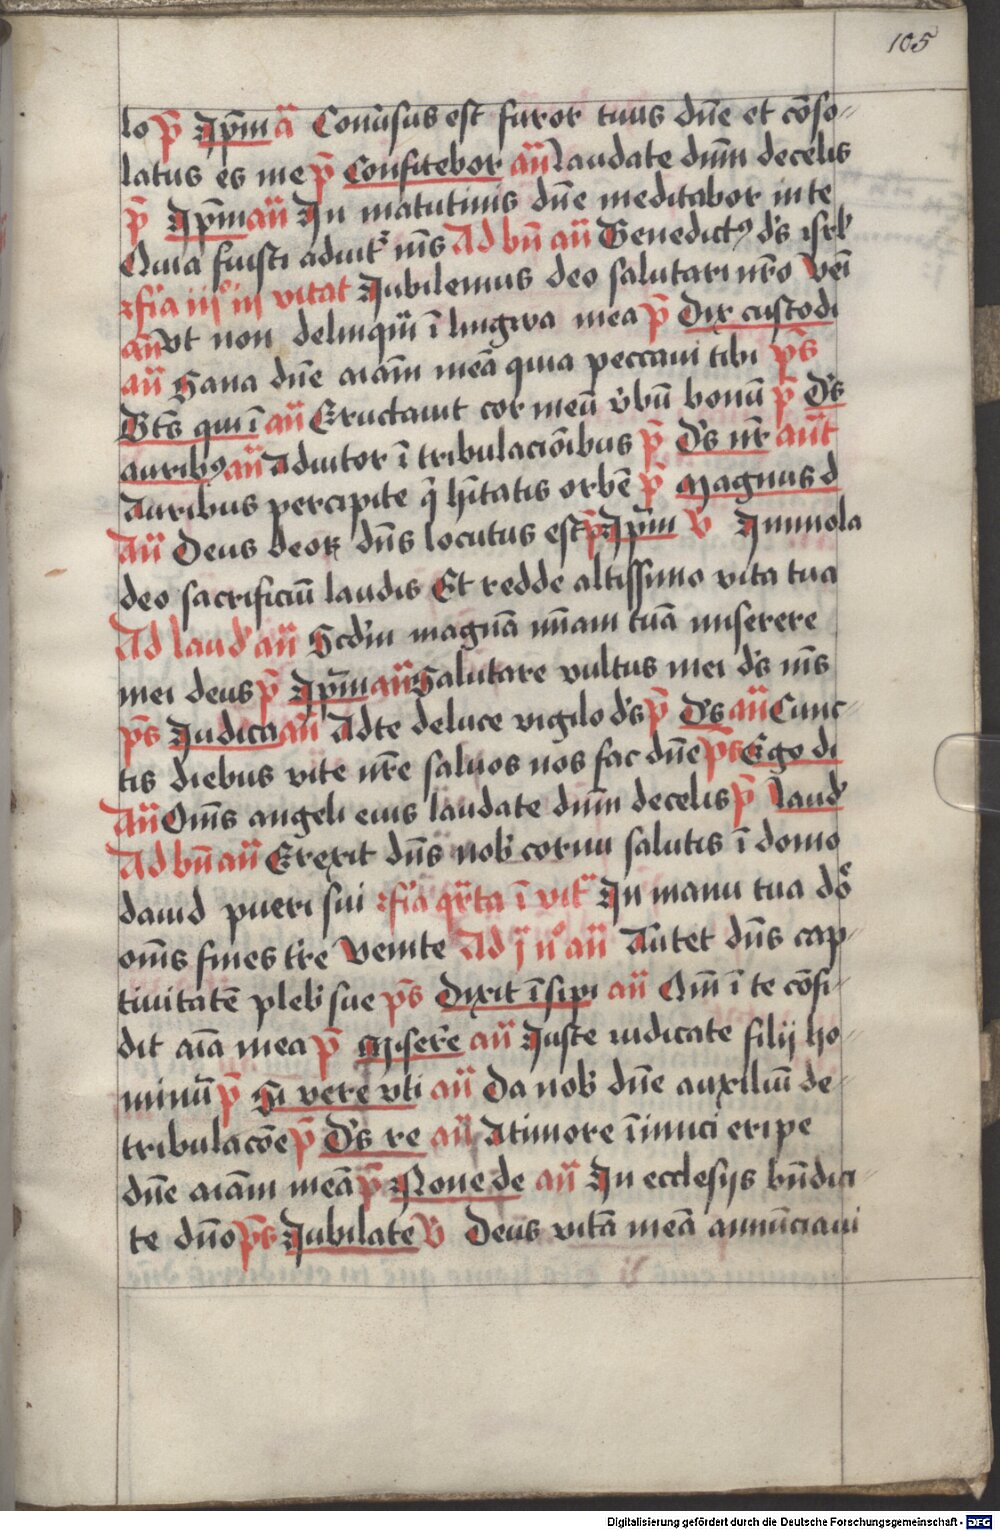 105
lo p̄ Ip̄m ā Conuersus est furor tuus dn̄e et cōso-
latus es me p̄ Confitebor an̄ Laudate dn̄m de celis
p̄ Ip̄m an̄ In matutinis dn̄e meditabor in te
Quia fuisti adiut᷑ m̄s Ad bn̄ an̄ Benedictꝯ d's isrl'
fīa iijᵃ in vitat Jubilemus deo salutari nr̄o Venī
an̄ Vt non delinquā ī lingwa mea p̄ Dix custodi
an̄ Sana dn̄e aiām meā quia peccaui tibi p̄s
Bt̄s qui ī an̄ Eructauit cor meū v̓bū bonū p̄ D's
auribꝯ an̄ Adiutor ī tribulaciōibus p̄ D's nr̄ an̄t
Auribus percipite q̄ hītatis orbē p̄ Magnus d
an̄ Deus deoꝝ dn̄s locutus est p̄ Ip̄m V̄ Immola
deo sacrificiū laudis Et redde altissimo vota tua
Ad laud' an̄ Scd'm magnā mīam tuā miserere
mei deus p̄ Ip̄m an̄ Salutare vultus mei d's m̄s
p̄s Iudica an̄ Ad te de luce vigilo d's p̄ D's an̄ Cunc-
tis diebus vite nr̄e saluos nos fac dn̄e p̄s Ego di
An̄ Om̄s angeli eius laudate dn̄m de celis p̄ Laud'
Ad bn̄ an̄ Erexit dn̄s nob' cornu salutis ī domo
dauid pueri sui fīa qr̄ta ī vit᷑ In manu tua dō
om̄s fines tr̄e Venite Ad j n° an̄ Au̓tet dn̄s cap-
tiuitatē pleb' sue p̄s Dixit īsipi an̄ Qm̄ ī te cōfi-
dit aīa mea p̄ Misere̓ an̄ Juste iudicate filij ho-
minū p̄ Si vere vti an̄ Da nob' dn̄e auxiliū de
tribulacōe p̄ D's re an̄ A timore īimici eripe
dn̄e aiām meā p̄ Nonne de an̄ In ecclesijs bn̄dici-
te dn̄o p̄s Jubilate V̄ Deus vitā meā annūciaui
Digitalisierung gefördert durch die Deutsche Forschungsgemeinschaft - DFG